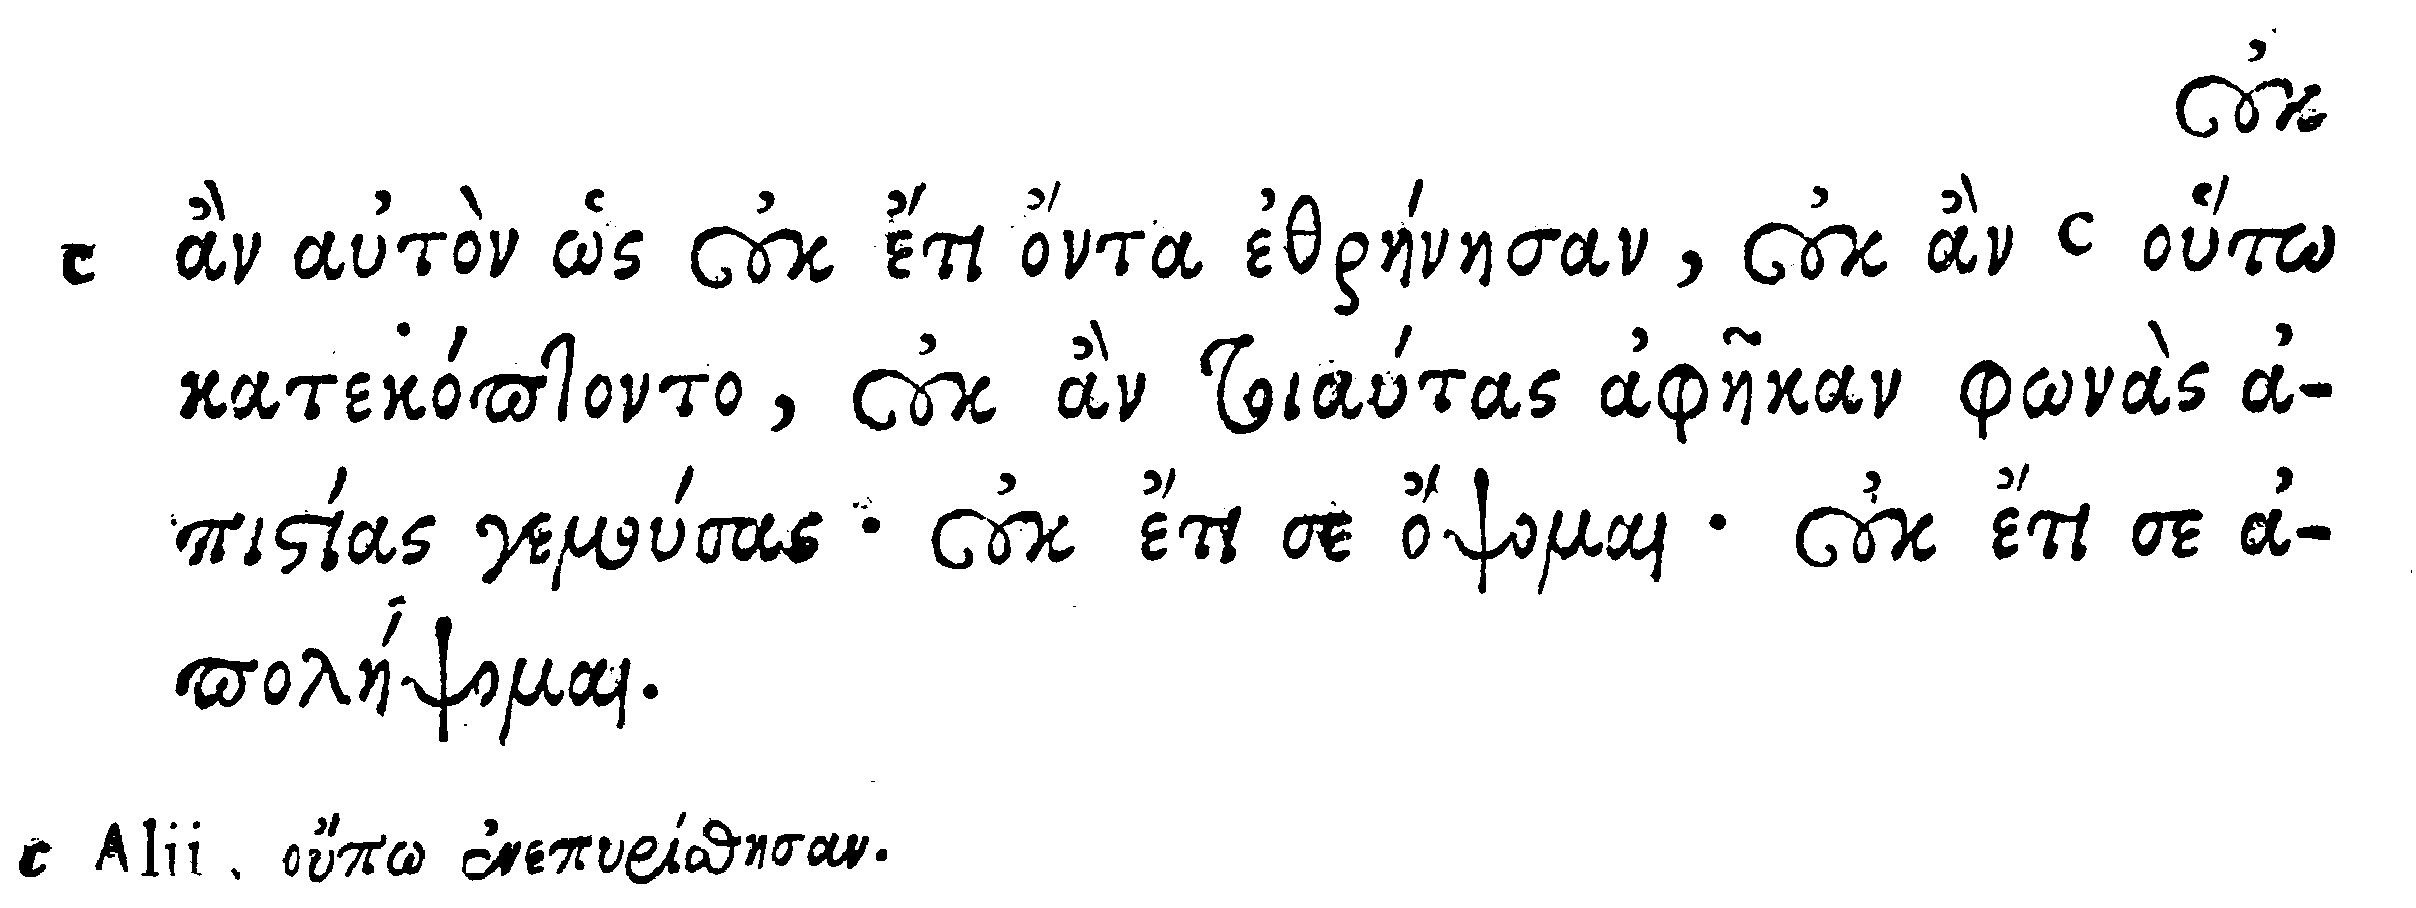 οὐκ
c ἂν αὐτὸν ὡς οὐκ ἔτι ὄντα ἐθρήνησαν, οὐκ ἂν c οὕτω
κατεκόπτοντο, οὐκ ἂν τοιαύτας ἀφῆκαν φωνὰς ἀ-
πιστίας γεμούσας · οὐκ ἔτι σε ὄψομαι · οὐκ ἔτι σε ἀ-
πολήψομαι.
c Alii, οὔπω ἐνεπυρίσθησαν.